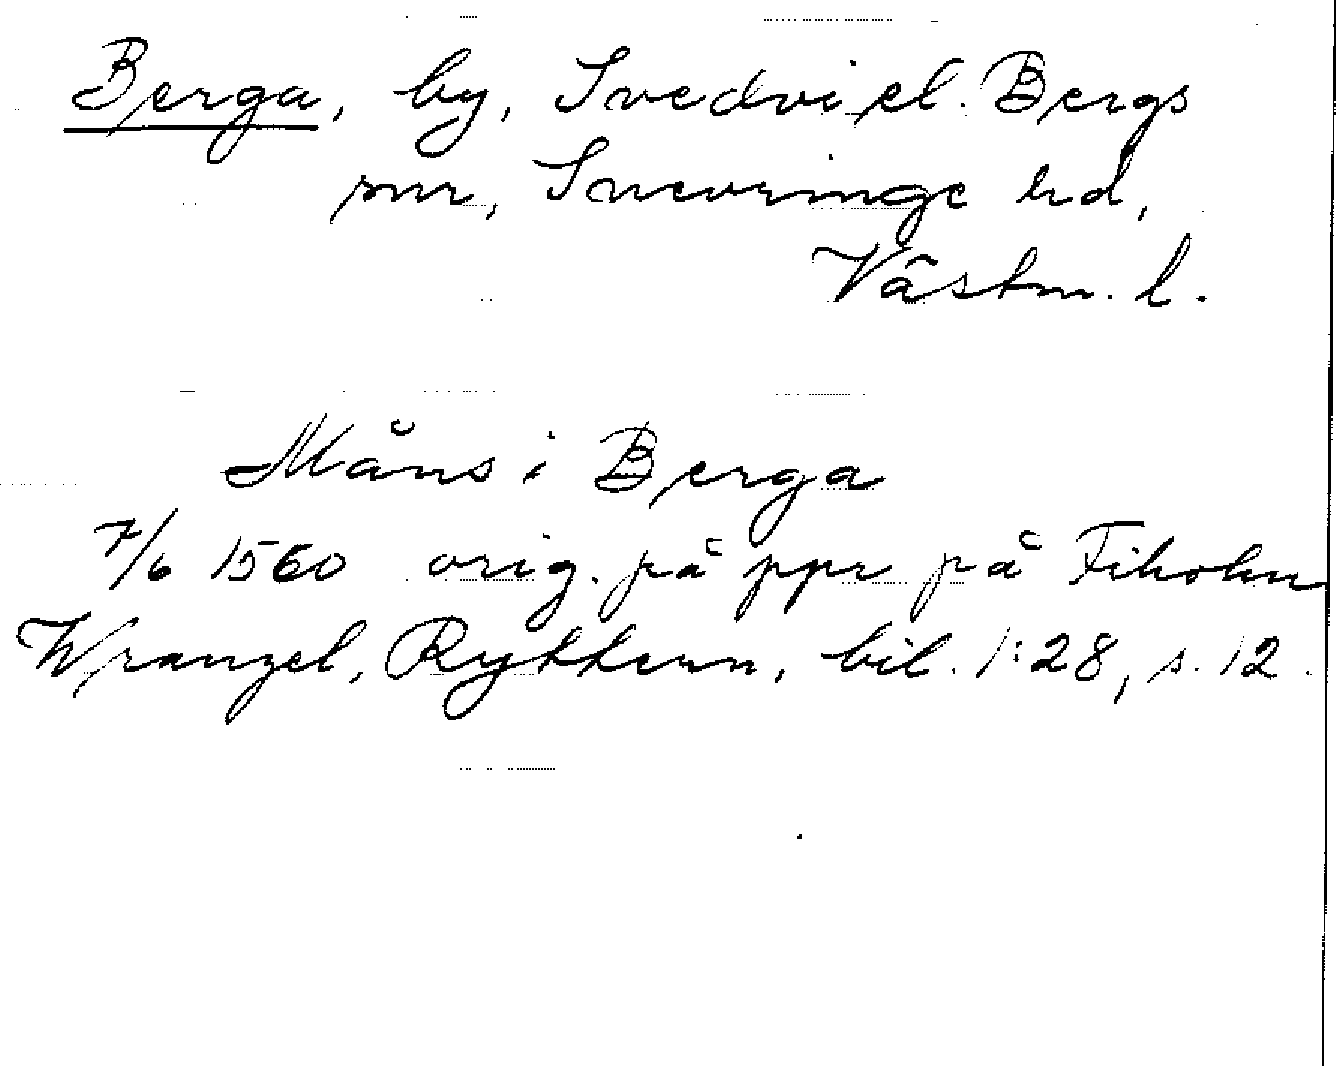 Berga, by, Svedvi el. Bergs
snr, Snevringe hd,
Västm. l.
Måns i Berga
7/6 1560 orig. på ppr på Fiholm
Wrangel, Rytterne, bil. 1:28, s. 12.